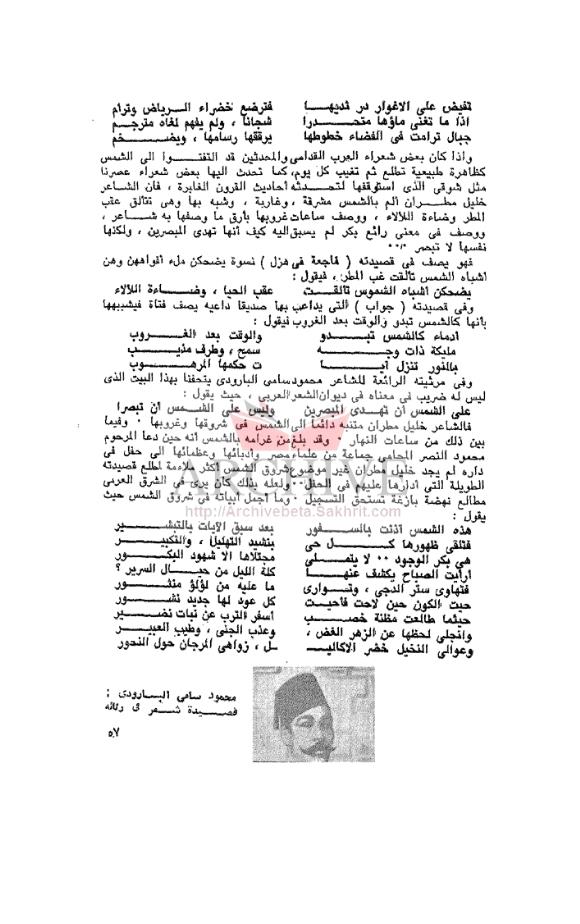 تفيض على الاغوار در ثديهـا فترضع خضراء الـرياض وترام
اذا ما تغنى ماؤها متحـدرا شجانا ، ولم يفهم لغاه مترجـم
جبال ترامت فى الفضاء خطوطها يرققها رسامها ، ويضـخم
واذا كان بعض شعراء العرب القدامى والمحدثين قد التفتـوا الى الشمس
كظاهرة طبيعية تطلع ثم تغيب كل يوم، كما تحدث اليها بعض شعراء عصرنا
مثل شوقى الذى استوقفها لتحـدثه أحاديث القرون الغابرة ، فان الشـاعر
خليل مطـران ألم بالشمس مشرقة ، وغاربة ، وشبه بها وهى تتألق عقب
المطر وضاءة اللألاء ، ووصف ساعات غروبها بأرق ما وصفها به شـاعر ،
ووصف فى معنى رائع بكر لم يسبق اليه كيف أنها تهدى المبصرين ، ولكنها
نفسها لا تبصر ٠٠٠
فهو يصف فى قصيدته ( فاجعة فى هزل ) نسوة يضحكن ملء أفواههن وهن
أشباه الشمس تألقت غب المطر، فيقول :
يضحكن أشباه الشموس تألقـت عقب الحيا ، وضـاءة اللألاء
وفى قصيدته ( جواب ) التى يداعب بها صديقا داعبه يصف فتاة فيشبهها
بأنها كالشمس تبدو والوقت بعد الغروب فيقول :
أدماء كالشمس تبـدو والوقت بعد الغـروب
مليكة ذات وجـه سمح ، وطرف مذيـب
بالنور تنزل آيـا ت حكمها المرهـوب
وفى مرثيته الرائعة للشاعر محمود سامى البارودى يتحفنا بهذا البيت الذى
ليس له ضريب فى معناه فى ديوان الشعر العربى ، حيث يقول :
على الشمس أن تهـدى المبصرين وليس على الشـمس أن تبصرا
فالشاعر خليل مطران متنبه دائما الى الشمس فى شروقها وغروبها ٠ وفيما
بين ذلك من ساعات النهار ٠ وقد بلغ من غرامه بالشمس أنه حين دعا المرحوم
محمود النصر المحامى جماعة من علماء مصر وأدبائها وعظمائها الى حفل فى
داره لم يجد خليل مطران غير موضوع شروق الشمس أكثر ملاءمة لمطلع قصيدته
الطويلة التى أدارها عليهم فى الحفل ٠٠ ولعله بذلك كان يرى فى الشرق العربى
مطالع نهضة بازغة تستحق التسجيل ٠ وما أجمل أبياته فى شروق الشمس حيث
يقول :
هذه الشمس آذنت بالسـفور بعد سبق الآيات بالتبشـير
فتلقى ظهورها كـل حى بنشيد التهليل ، والتكبيـر
هى بكر الوجود ٠٠ لا يتمـلى مجتلاها الا شهود البكـور
أرأيت الصباح يكشف عنهـا كلة الليل من حيـال السرير ؟
فتهاوى ستر الدجى ، وتـوارى ما عليه من لؤلؤ منثـور
حيث الكون حين لاحت فأحيـت كل عود لها جديد نشـور
حيثما طالعت مظنة خصـب أسفر الترب عن نبات نضـير
وانجلى لحظها عن الزهر الغض ، وعذب الجنى ، وطيب العبيـر
وعوالى النخيل خضر الاكاليـ ـل ، زواهى المرجان حول النحور
محمود سامى البـارودى :
قصـيدة شـعر فى رثائه
٥٧
ARCHIVE
http://Archivebeta.Sakhrit.com